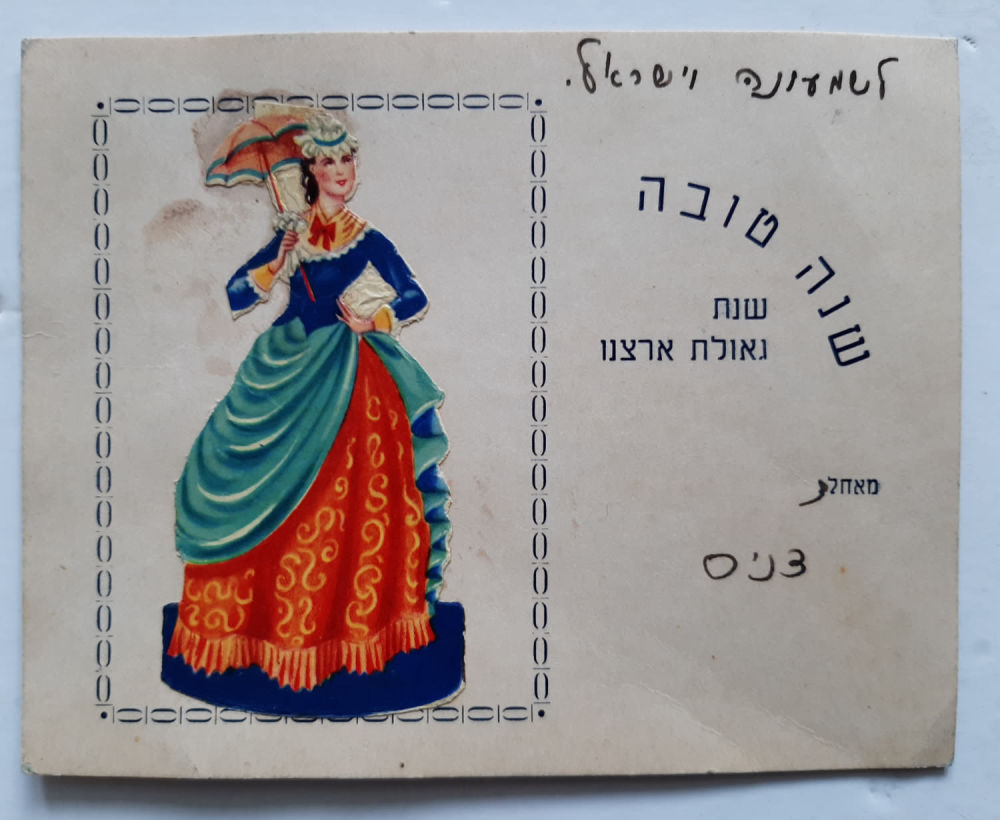 לשמעונה וישראל.
שנה טובה
שנת
גאולת ארצנו